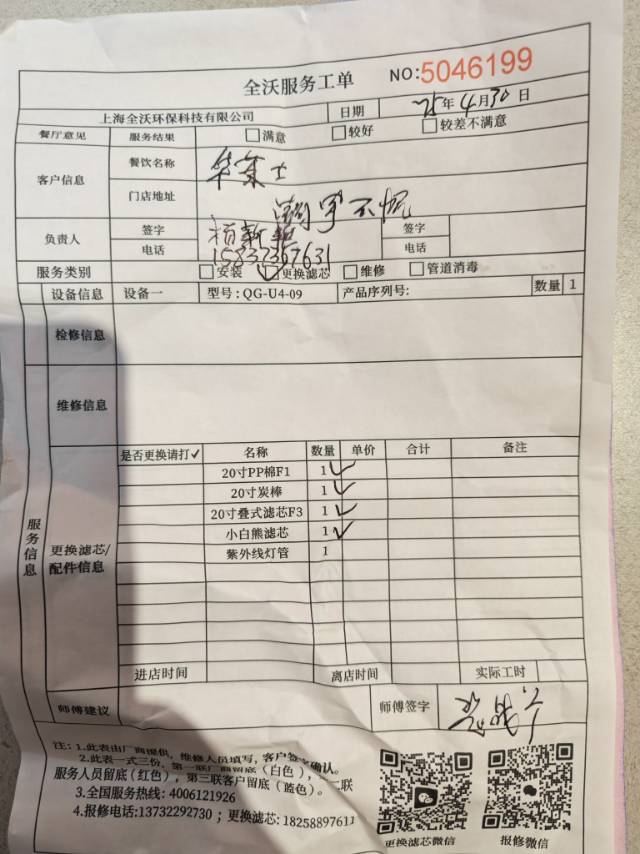 全沃服务工单 NO:5046199
上海全沃环保科技有限公司 日期 25年4月30日
餐厅意见 服务结果 满意 较好 较差不满意
客户信息 餐饮名称 华莱士
门店地址
负责人 签字 签字
电话 电话
服务类别 安装 更换滤芯 维修 管道消毒
设备信息 设备一 型号: QG-U4-09 产品序列号: 数量 1
检修信息
维修信息
服务信息
更换滤芯/配件信息
是否更换请打✓ 名称 数量 单价 合计 备注
20寸PP棉F1 1 ✓
20寸炭棒 1 ✓
20寸叠式滤芯F3 1 ✓
小白熊滤芯 1 ✓
紫外线灯管 1
进店时间 离店时间 实际工时
师傅建议 师傅签字
注: 1.此表由厂商提供, 维修人员填写, 客户签字确认。
2.此表一式三份, 第一联厂商留底(白色), 二联
服务人员留底(红色), 第三联客户留底(蓝色)。
3.全国服务热线: 4006121926
4.报修电话:13732292730 ; 更换滤芯: 18258897611
更换滤芯微信 报修微信